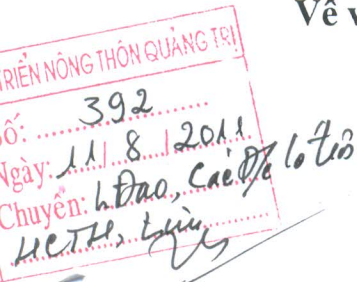 Về v
TRIỂN NÔNG THÔN QUẢNG TRỊ
Số: 392
Ngày: 11/8/2011
Chuyển: LĐạo, Các
HCTH,